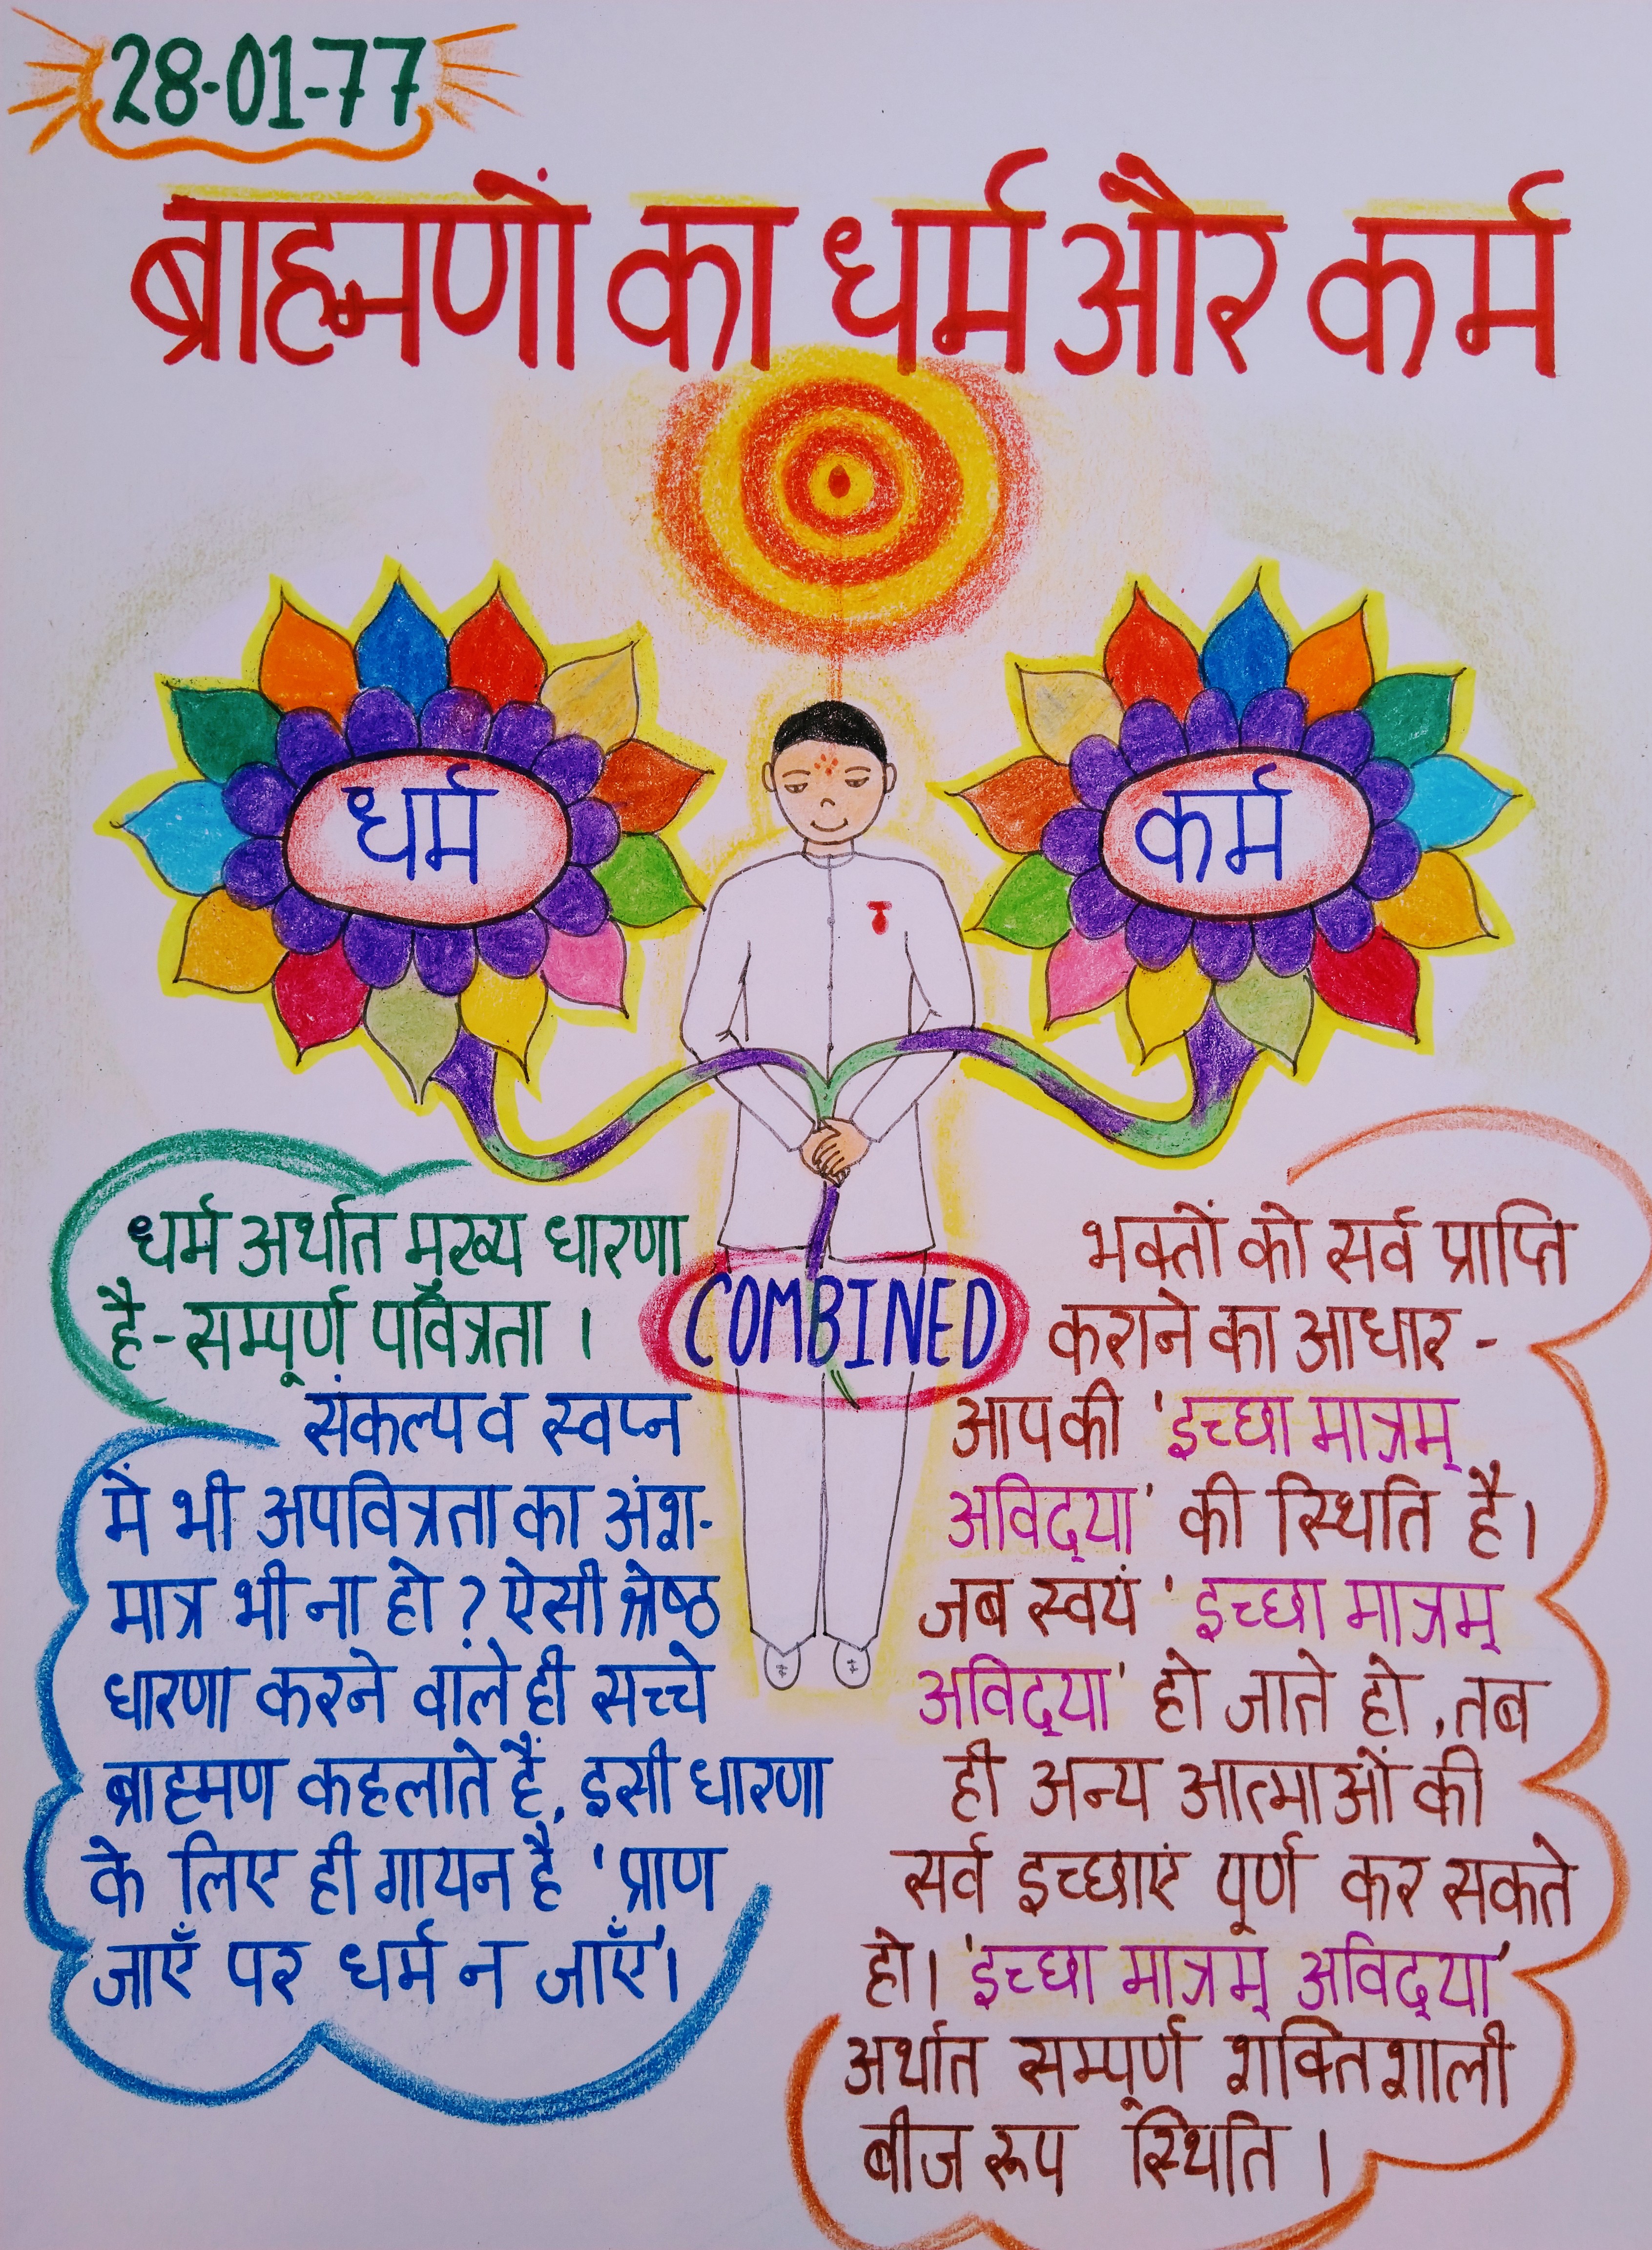 28-01-77
ब्राह्मणों का धर्म और कर्म
धर्म
कर्म
COMBINED
धर्म अर्थात मुख्य धारणा
है - सम्पूर्ण पवित्रता ।
संकल्प व स्वप्न
में भी अपवित्रता का अंश-
मात्र भी ना हो ? ऐसी श्रेष्ठ
धारणा करने वाले ही सच्चे
ब्राह्मण कहलाते हैं, इसी धारणा
के लिए ही गायन है 'प्राण
जाएँ पर धर्म न जाएँ'।
भक्तों को सर्व प्राप्ति
कराने का आधार -
आपकी 'इच्छा मात्रम्
अविद्या' की स्थिति है।
जब स्वयं 'इच्छा मात्रम्
अविद्या' हो जाते हो, तब
ही अन्य आत्माओं की
सर्व इच्छाएं पूर्ण कर सकते
हो। 'इच्छा मात्रम् अविद्या'
अर्थात सम्पूर्ण शक्तिशाली
बीज रूप स्थिति ।